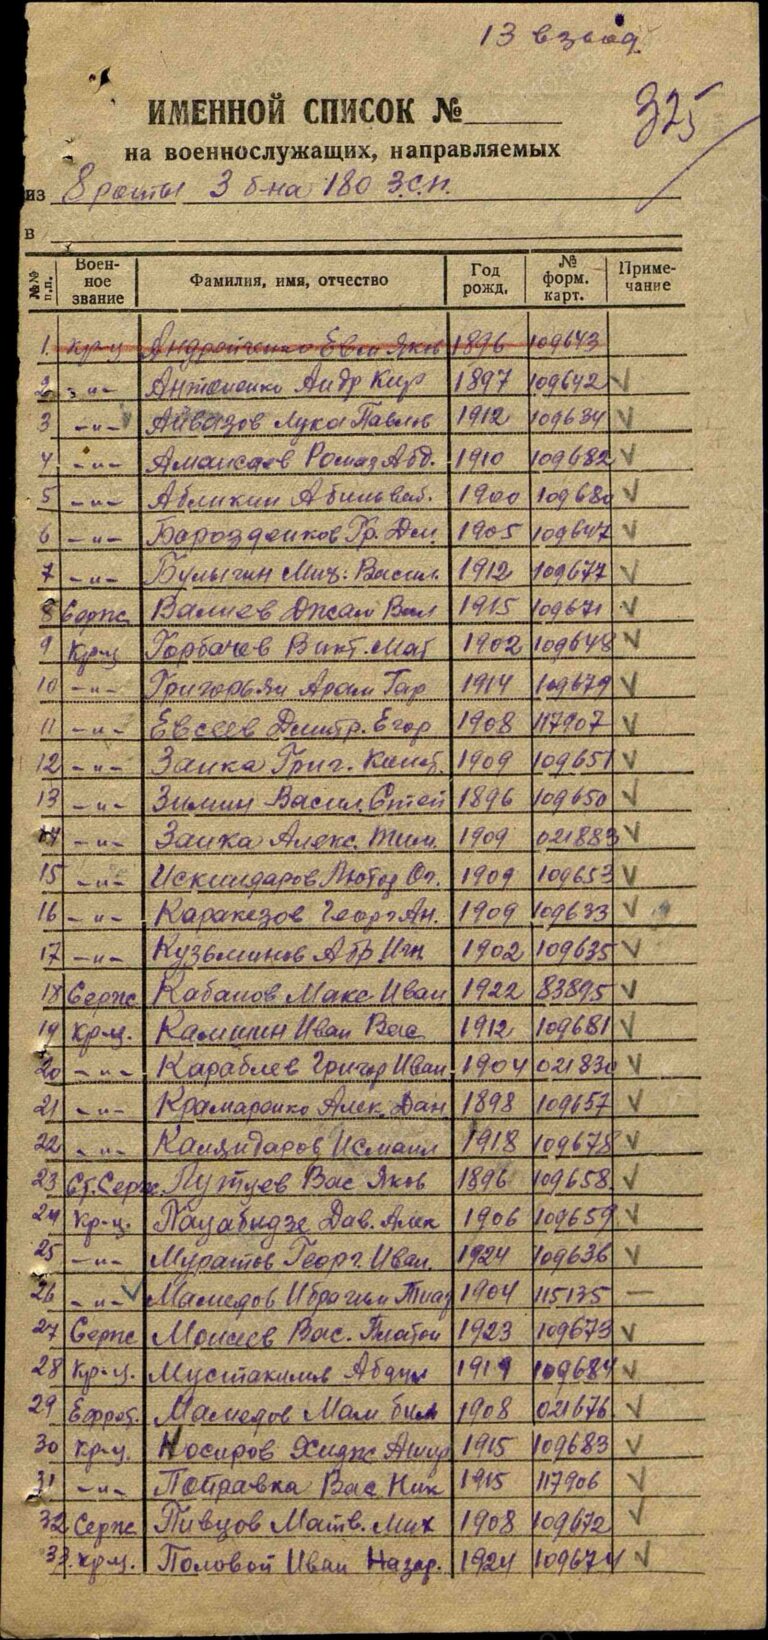 13 взвод
325
ИМЕННОЙ СПИСОК №
на военнослужащих, направляемых
из 8 роты 3 б-на 180 З.С.П.
в
№№ п.п. Воен-ное звание Фамилия, имя, отчество Год рожд. № форм. карт. Приме-чание
1. кр-ц Андрейченко Евст Яков 1896 109643
2 -"- Антоненко Андр Кир 1897 109642 V
3 -"- Айвазов Лука Павлов 1912 109634 V
4 -"- Амансаев Абд. 1910 109682 V
5 -"- Абликин 1900 109680 V
6 -"- Барозденков Гр. Дм. 1905 109647 V
7 -"- Булыгин Мих: Васил. 1912 109677 V
8 Серж Валиев Джам Вал 1915 109671 V
9 Кр-ц Горбачев Викт. Мат 1902 109648 V
10 -"- Григорьян Арам Гар 1914 109679 V
11 -"- Евсеев Дмитр. Егор 1908 117907 V
12 -"- Заика Григ. Конст. 1909 109651 V
13 -"- Зимин Васил. Степ 1896 109650 V
14 -"- Заика Алекс. Тим. 1909 021883 V
15 -"- Искиндаров 1909 109653 V
16 -"- Каракезов Георг Ан. 1909 109633 V
17 -"- Кузьминов Абр Игн 1902 109635 V
18 Серж Кабанов Макс Иван 1922 83895 V
19 кр-ц. Камшин Иван Вас 1912 109681 V
20 -"- Караблев Григор Иван 1904 021830 V
21 -"- Крамаренко Алек. Дан 1898 109657 V
22 -"- Каляндаров Исмаил 1918 109678 V
23 Ст. Серж. Лутуев Вас Яков 1896 109658 V
24 Кр-ц. Дав. Алек 1906 109659 V
25 -"- Муратов Георг. Иван. 1924 109636 V
26 -"- V Мамедов Ибрагим 1904 115135 —
27 Серж Моисеев Вас. Платон 1923 109673 V
28 Кр-ц. Мустакимов Абдул 1914 109684 V
29 Ефрет. Мамедов Мам 1908 021676 V
30 кр-ц. Носиров 1915 109683 V
31 -"- Поправка Вас Ник 1915 117906 V
32 Серж Пивцов Матв. Мих 1908 109672 V
33. кр-ц. Половой Иван Назар. 1924 109674 V